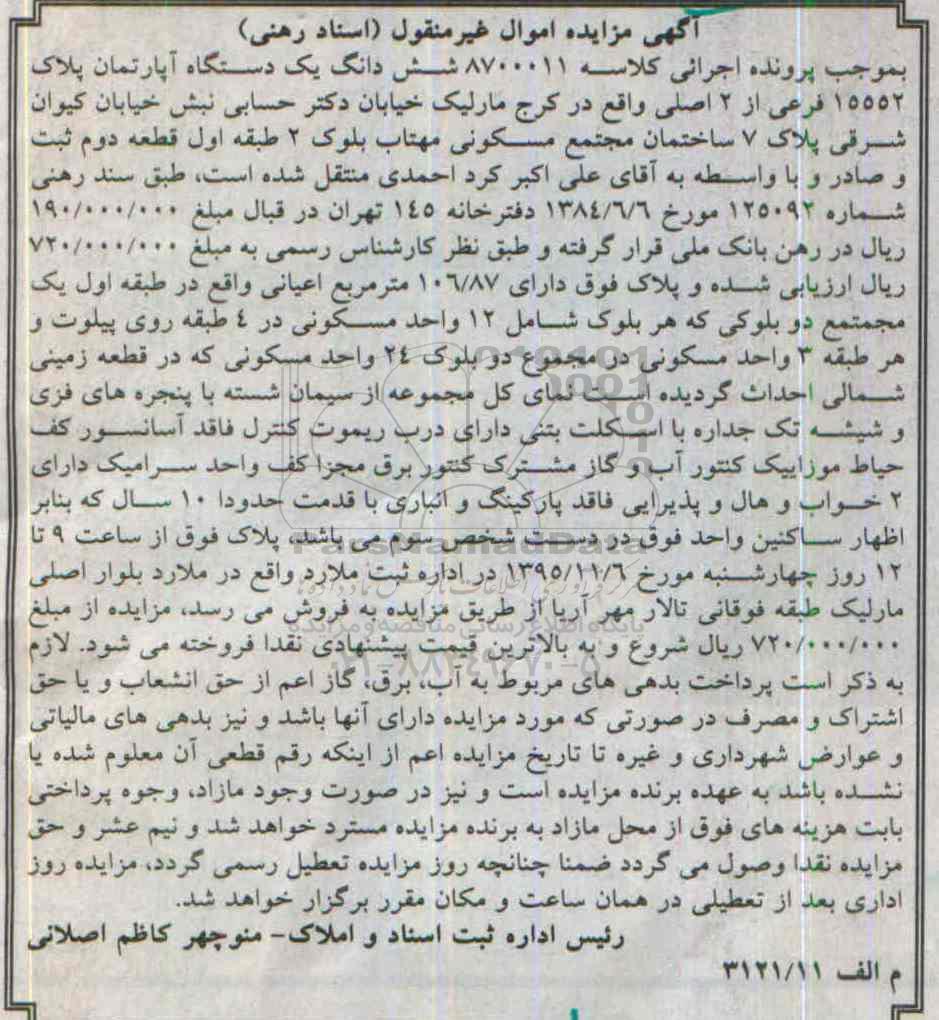 آگهی مزایده اموال غیرمنقول (اسناد رهنی)
بموجب پرونده اجرائی کلاسه ۸۷۰۰۰۱۱ شش دانگ یک دستگاه آپارتمان پلاک
۱۵۵۵۲ فرعی از ۲ اصلی واقع در کرج مارلیک خیابان دکتر حسابی نبش خیابان کیوان
شرقی پلاک ۷ ساختمان مجتمع مسکونی مهتاب بلوک ۲ طبقه اول قطعه دوم ثبت
و صادر و با واسطه به آقای علی اکبر کرد احمدی منتقل شده است، طبق سند رهنی
شماره ۱۲۵۰۹۲ مورخ ۱۳۸٤/۶/۶ دفترخانه ۱٤۵ تهران در قبال مبلغ ۱۹۰/۰۰۰/۰۰۰
ریال در رهن بانک ملی قرار گرفته و طبق نظر کارشناس رسمی به مبلغ ۷۲۰/۰۰۰/۰۰۰
ریال ارزیابی شده و پلاک فوق دارای ۱۰٦/۸۷ مترمربع اعیانی واقع در طبقه اول یک
مجمتمع دو بلوکی که هر بلوک شامل ۱۲ واحد مسکونی در ٤ طبقه روی پیلوت و
هر طبقه ۳ واحد مسکونی در مجموع دو بلوک ۲٤ واحد مسکونی که در قطعه زمینی
شمالی احداث گردیده است نمای کل مجموعه از سیمان شسته با پنجره های فزی
و شیشه تک جداره با اسکلت بتنی دارای درب ریموت کنترل فاقد آسانسور کف
حیاط موزاییک کنتور آب و گاز مشترک کنتور برق مجزا کف واحد سرامیک دارای
۲ خواب و هال و پذیرایی فاقد پارکینگ و انباری با قدمت حدودا ۱۰ سال که بنابر
اظهار ساکنین واحد فوق در دست شخص سوم می باشد، پلاک فوق از ساعت ۹ تا
۱۲ روز چهارشنبه مورخ ۱۳۹۵/۱۱/۶ در اداره ثبت ملارد واقع در ملارد بلوار اصلی
مارلیک طبقه فوقانی تالار مهر آریا از طریق مزایده به فروش می رسد، مزایده از مبلغ
۷۲۰/۰۰۰/۰۰۰ ریال شروع و به بالاترین قیمت پیشنهادی نقدا فروخته می شود. لازم
به ذکر است پرداخت بدهی های مربوط به آب، برق، گاز اعم از حق انشعاب و یا حق
اشتراک و مصرف در صورتی که مورد مزایده دارای آنها باشد و نیز بدهی های مالیاتی
و عوارض شهرداری و غیره تا تاریخ مزایده اعم از اینکه رقم قطعی آن معلوم شده یا
نشده باشد به عهده برنده مزایده است و نیز در صورت وجود مازاد، وجوه پرداختی
بابت هزینه های فوق از محل مازاد به برنده مزایده مسترد خواهد شد و نیم عشر و حق
مزایده نقدا وصول می گردد ضمنا چنانچه روز مزایده تعطیل رسمی گردد، مزایده روز
اداری بعد از تعطیلی در همان ساعت و مکان مقرر برگزار خواهد شد.
رئیس اداره ثبت اسناد و املاک- منوچهر کاظم اصلانی
م الف ۳۱۲۱/۱۱
ParsNamadData
پایگاه اطلاع رسانی مناقصه و مزایده